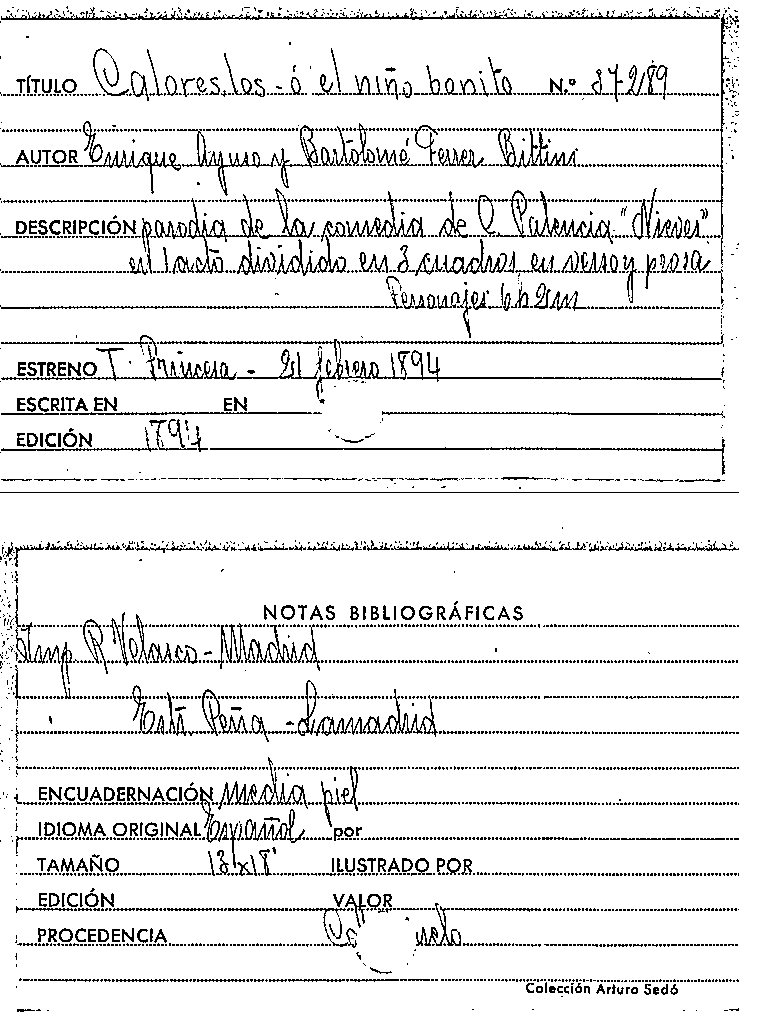 TÍTULO Calores, los - ó el niño bonito N.º 372189
AUTOR Enrique Ayuso y Bartolomé Ferrer Bittini
DESCRIPCIÓN parodia de la comedia de C. Palencia "Nieves"
en 1 acto dividido en 3 cuadros en verso y prosa
Personajes 6 h 2 m
ESTRENO T. Princesa - 21 febrero 1894
ESCRITA EN EN
EDICIÓN 1894
NOTAS BIBLIOGRÁFICAS
Imp R Velasco - Madrid
Estr. Peña - Lamadrid
ENCUADERNACIÓN media piel
IDIOMA ORIGINAL Español por
TAMAÑO 13x18 ILUSTRADO POR
EDICIÓN VALOR
PROCEDENCIA
Colección Arturo Sedó